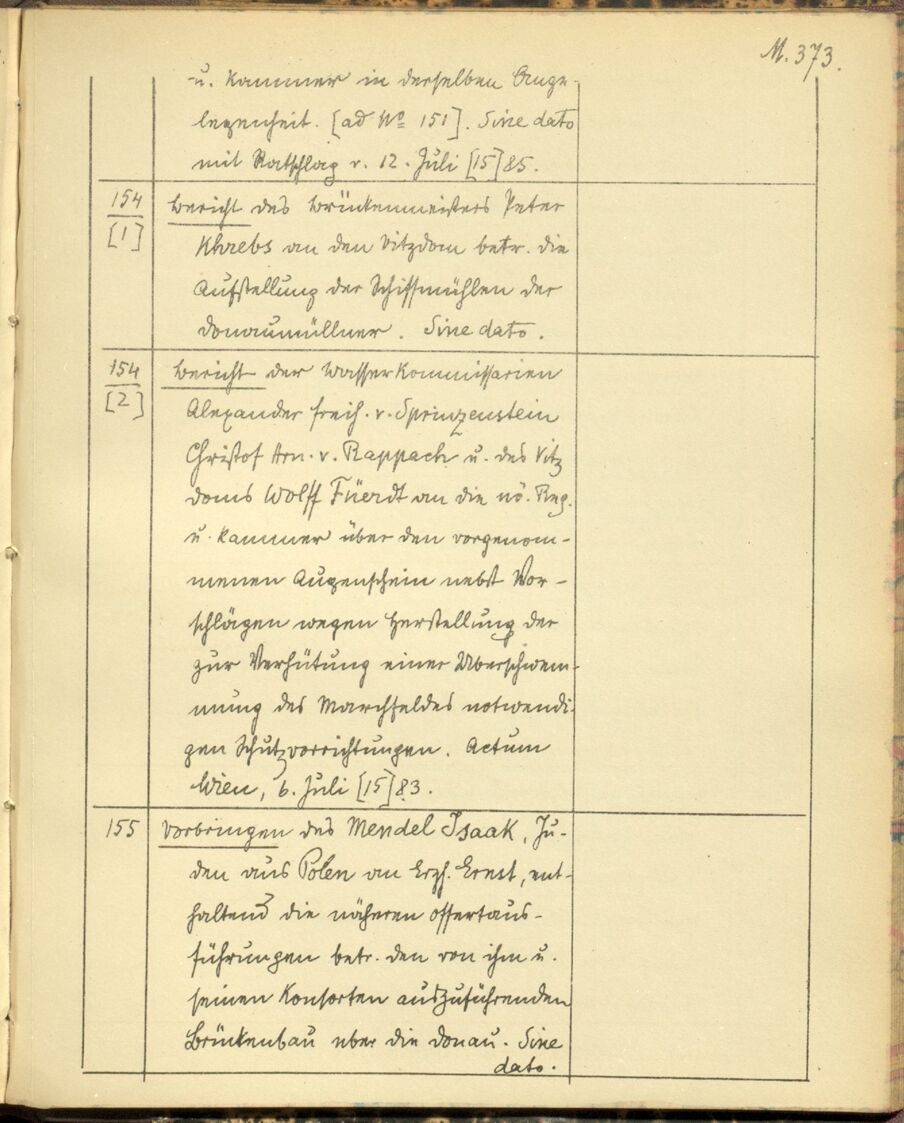 M. 373.
u. Kammer in derselben Ange-
legenheit. [ad No 151]. Sine dato
mit Ratschlag v. 12. Juli [15]85.
154
[1]
Bericht des Brückenmeisters Peter
Khrebs an den Vitzdom betr. die
Aufstellung der Schiffmühlen der
Donaumüllner. Sine dato.
154
[2]
Bericht der Wasserkommissarien
Alexander Freih. v. Sprinzenstein
Christof Hrn. v. Rappach u. des Vitz
doms Wolff Füerdt an die nö. Reg.
u. Kammer über den vorgenom-
menen Augenschein nebst Vor-
schlägen wegen Herstellung der
zur Verhütung einer Überschwem-
mung des Marchfeldes notwendi-
gen Schutzvorrichtungen. Actum
Wien, 6. Juli [15]83.
155
Vorbringen des Mendel Isaak, Ju-
den aus Polen an Erzh. Ernst, ent-
haltend die näheren Offertaus-
führungen betr. den von ihm u.
seinen Konsorten auszuführenden
Brückenbau über die Donau. Sine
dato.